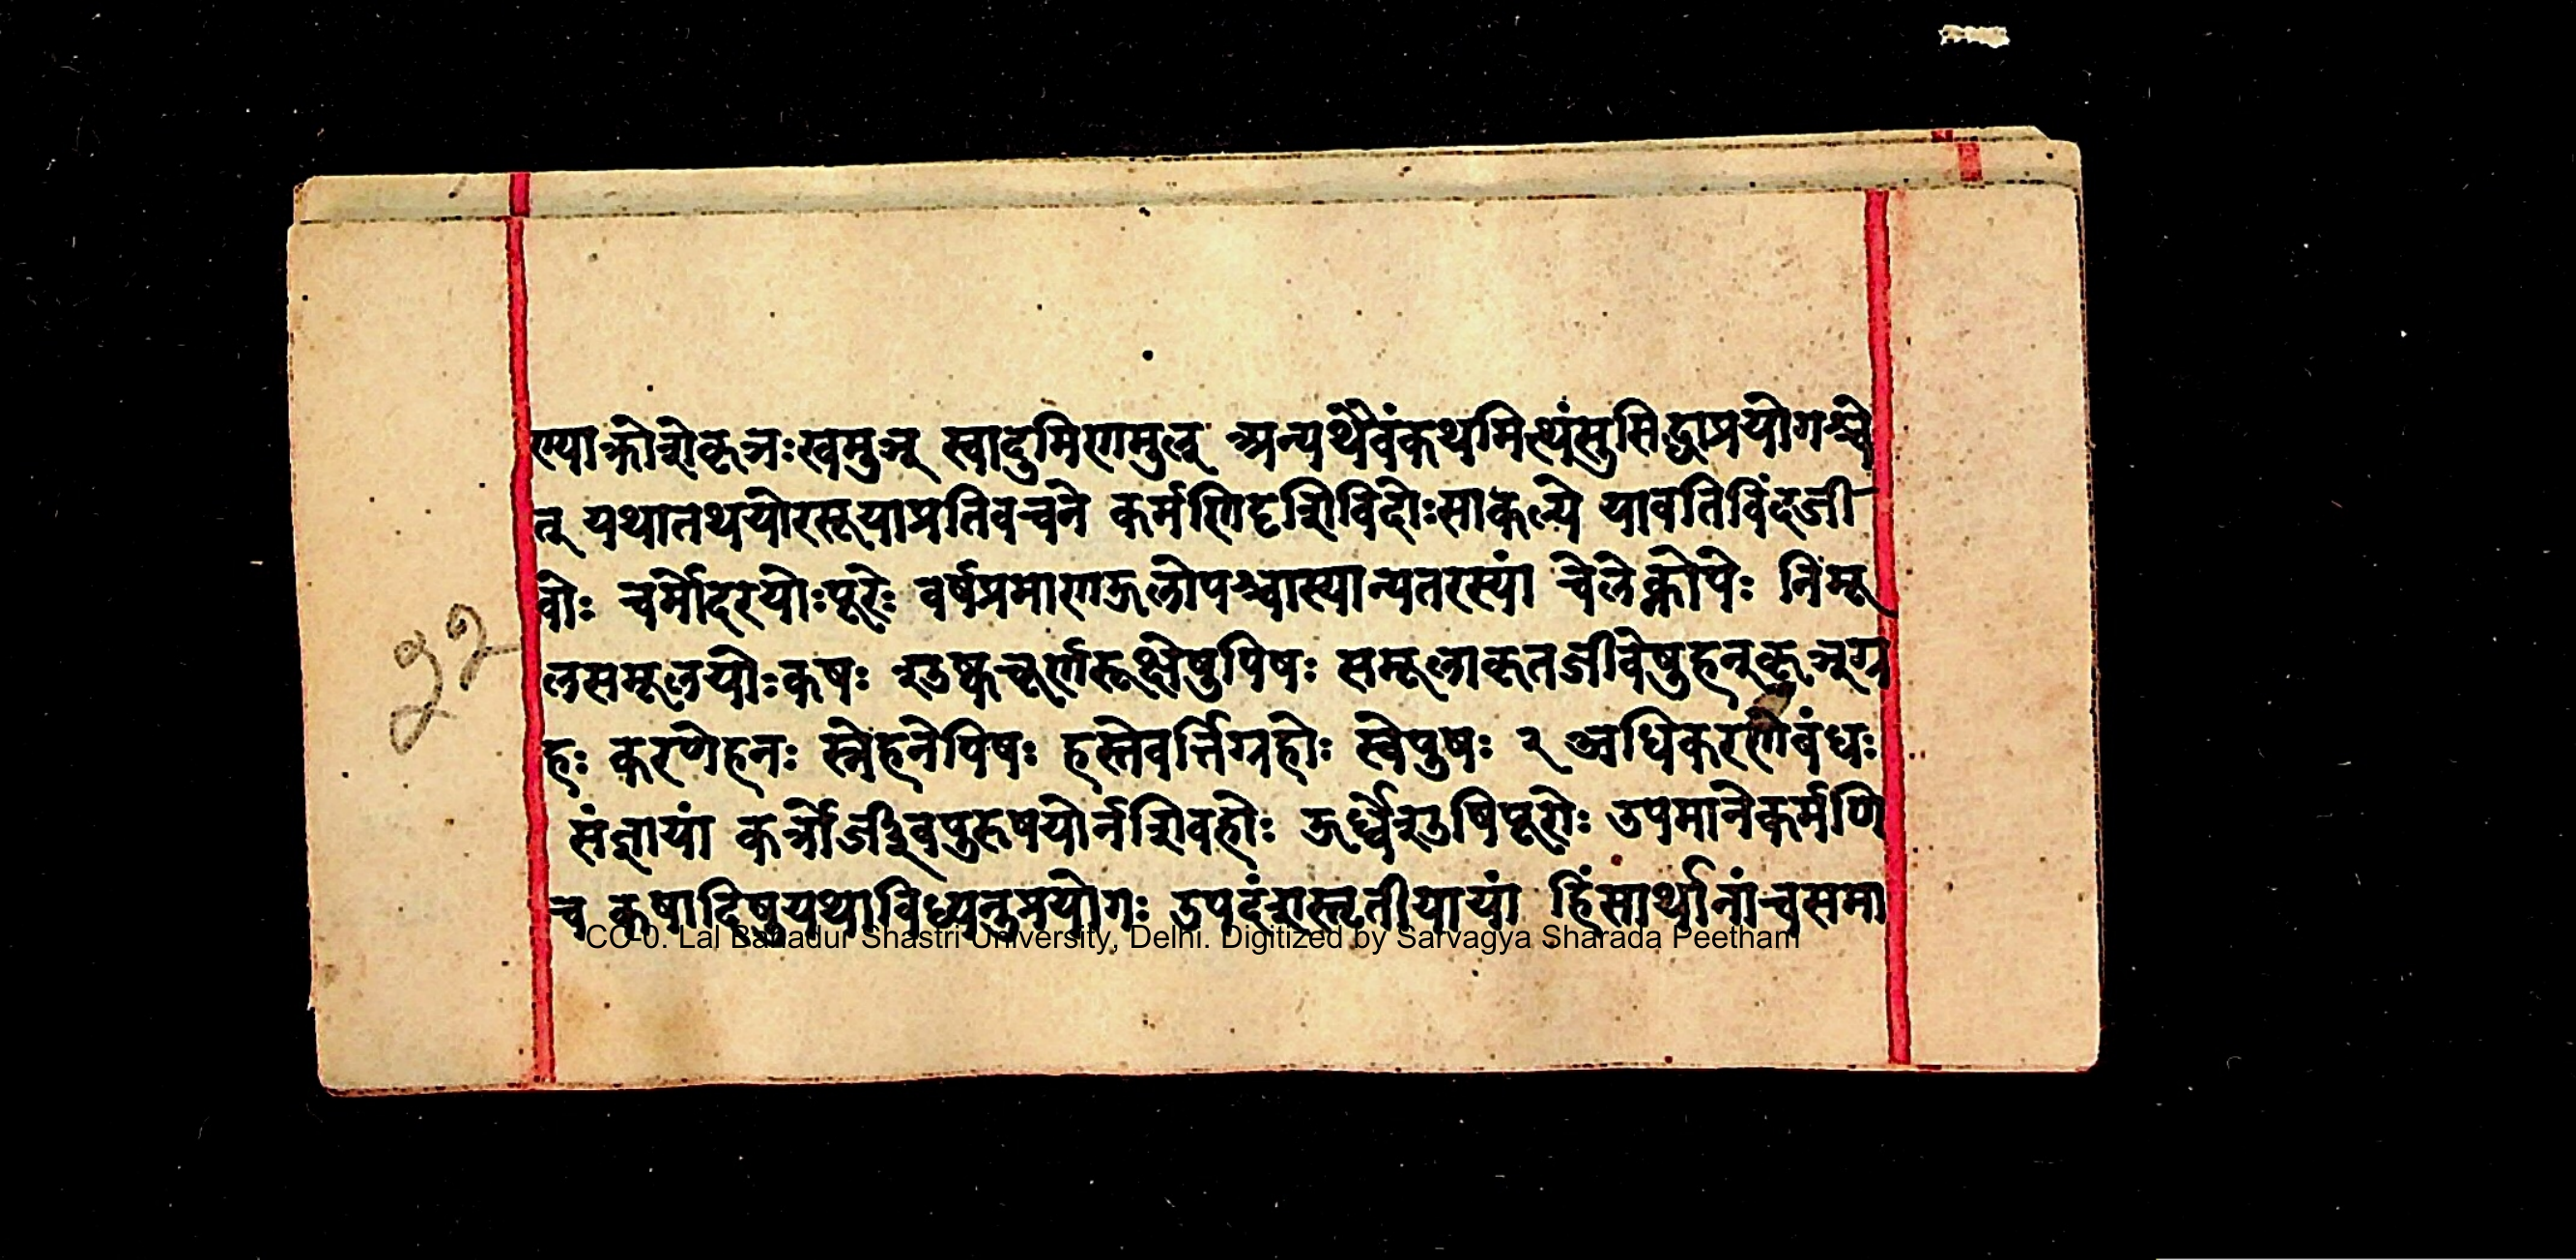 ण्याक्रोशेकृञःखमुञ् स्वादुमिणमुल् अन्यथैवंकथमित्थंसुसिद्धाप्रयोगश्चे
त् यथातथयोरसूयाप्रतिवचने कर्मणिदृशिविदोःसाकल्ये यावतिविंदजी
वोः चर्मोदरयोःपूरेः वर्षप्रमाणऊलोपश्चास्यान्यतरस्यां चेलेक्नोपेः निमू
लसमूलयोःकषः शुष्कचूर्णरूक्षेषुपिषः समूलाकृतजीवेषुहन्कृञ्ग्र
हः करणेहनः स्नेहनेपिषः हस्तेवर्त्तिग्रहोः स्वेपुषः २ अधिकरणेबंधः
संज्ञायां कर्त्रोर्जीवपुरुषयोर्नशिवहोः ऊर्ध्वेशुषिपूरोः उपमानेकर्मणि
च कषादिषुयथाविध्यनुप्रयोगः उपदंशस्तृतीयायां हिंसार्थानांचसमा
३२
CC-0. Lal Bahadur Shastri University, Delhi. Digitized by Sarvagya Sharada Peetham